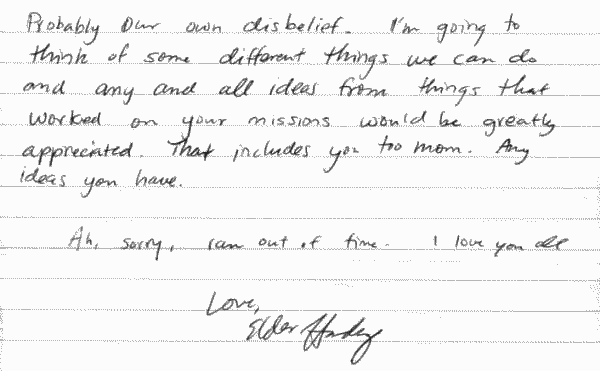 Probably our own disbelief. I'm going to
think of some different things we can do
and any and all ideas from things that
worked on your missions would be greatly
appreciated. That includes you too mom. Any
ideas you have.
Ah, sorry, ran out of time. I love you all
Love,
Elder